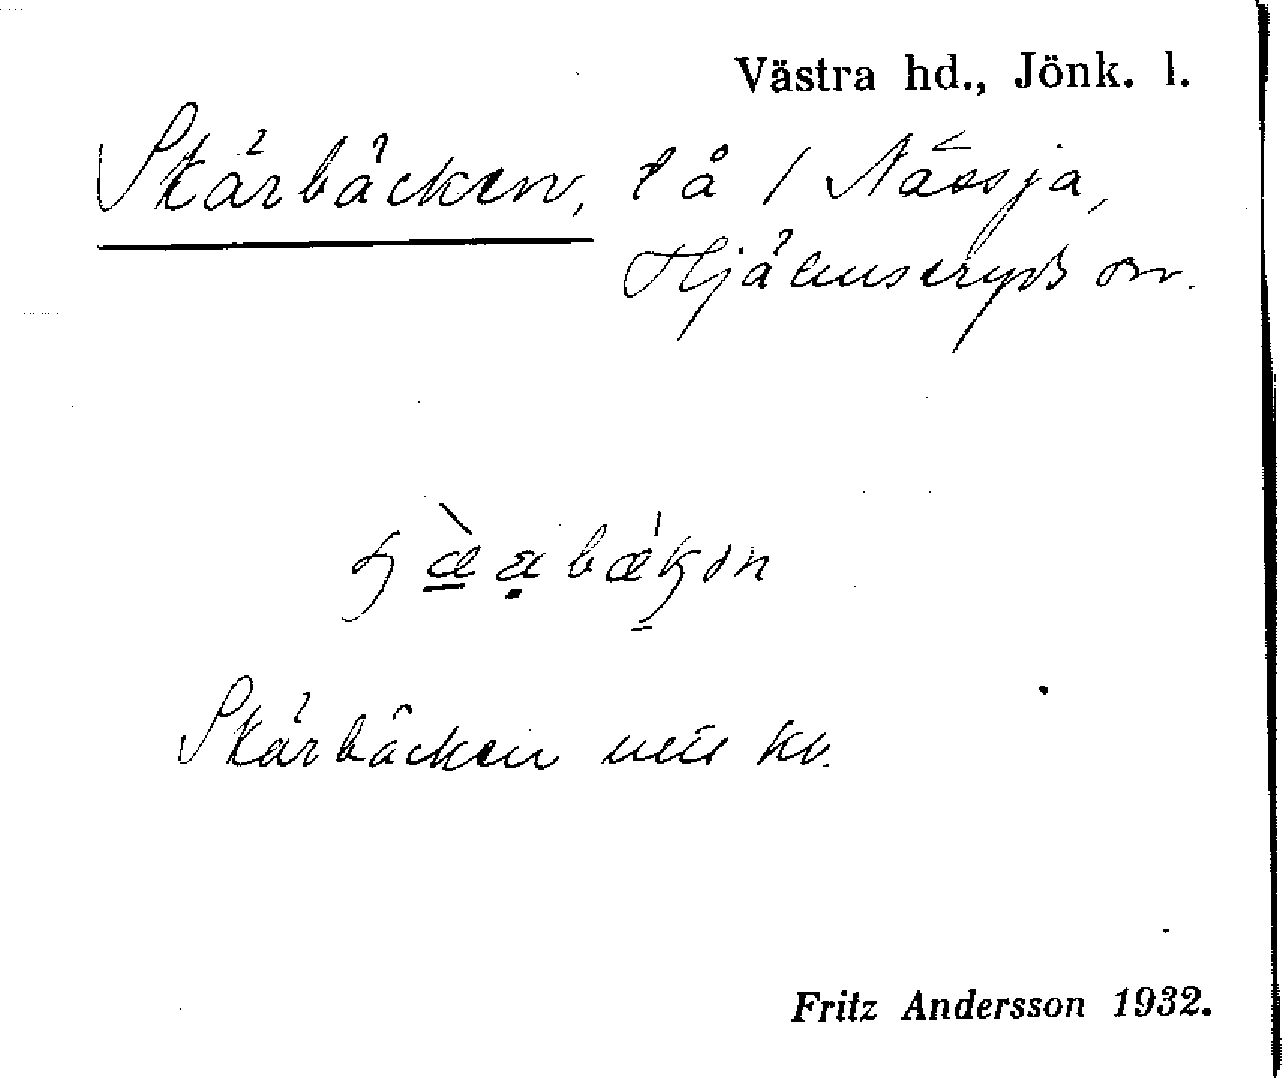 Västra hd., Jönk. l.
Skärbäcken, l å / Nässja,
Hjälmseryds sn.
Skärbäcken
Fritz Andersson 1932.